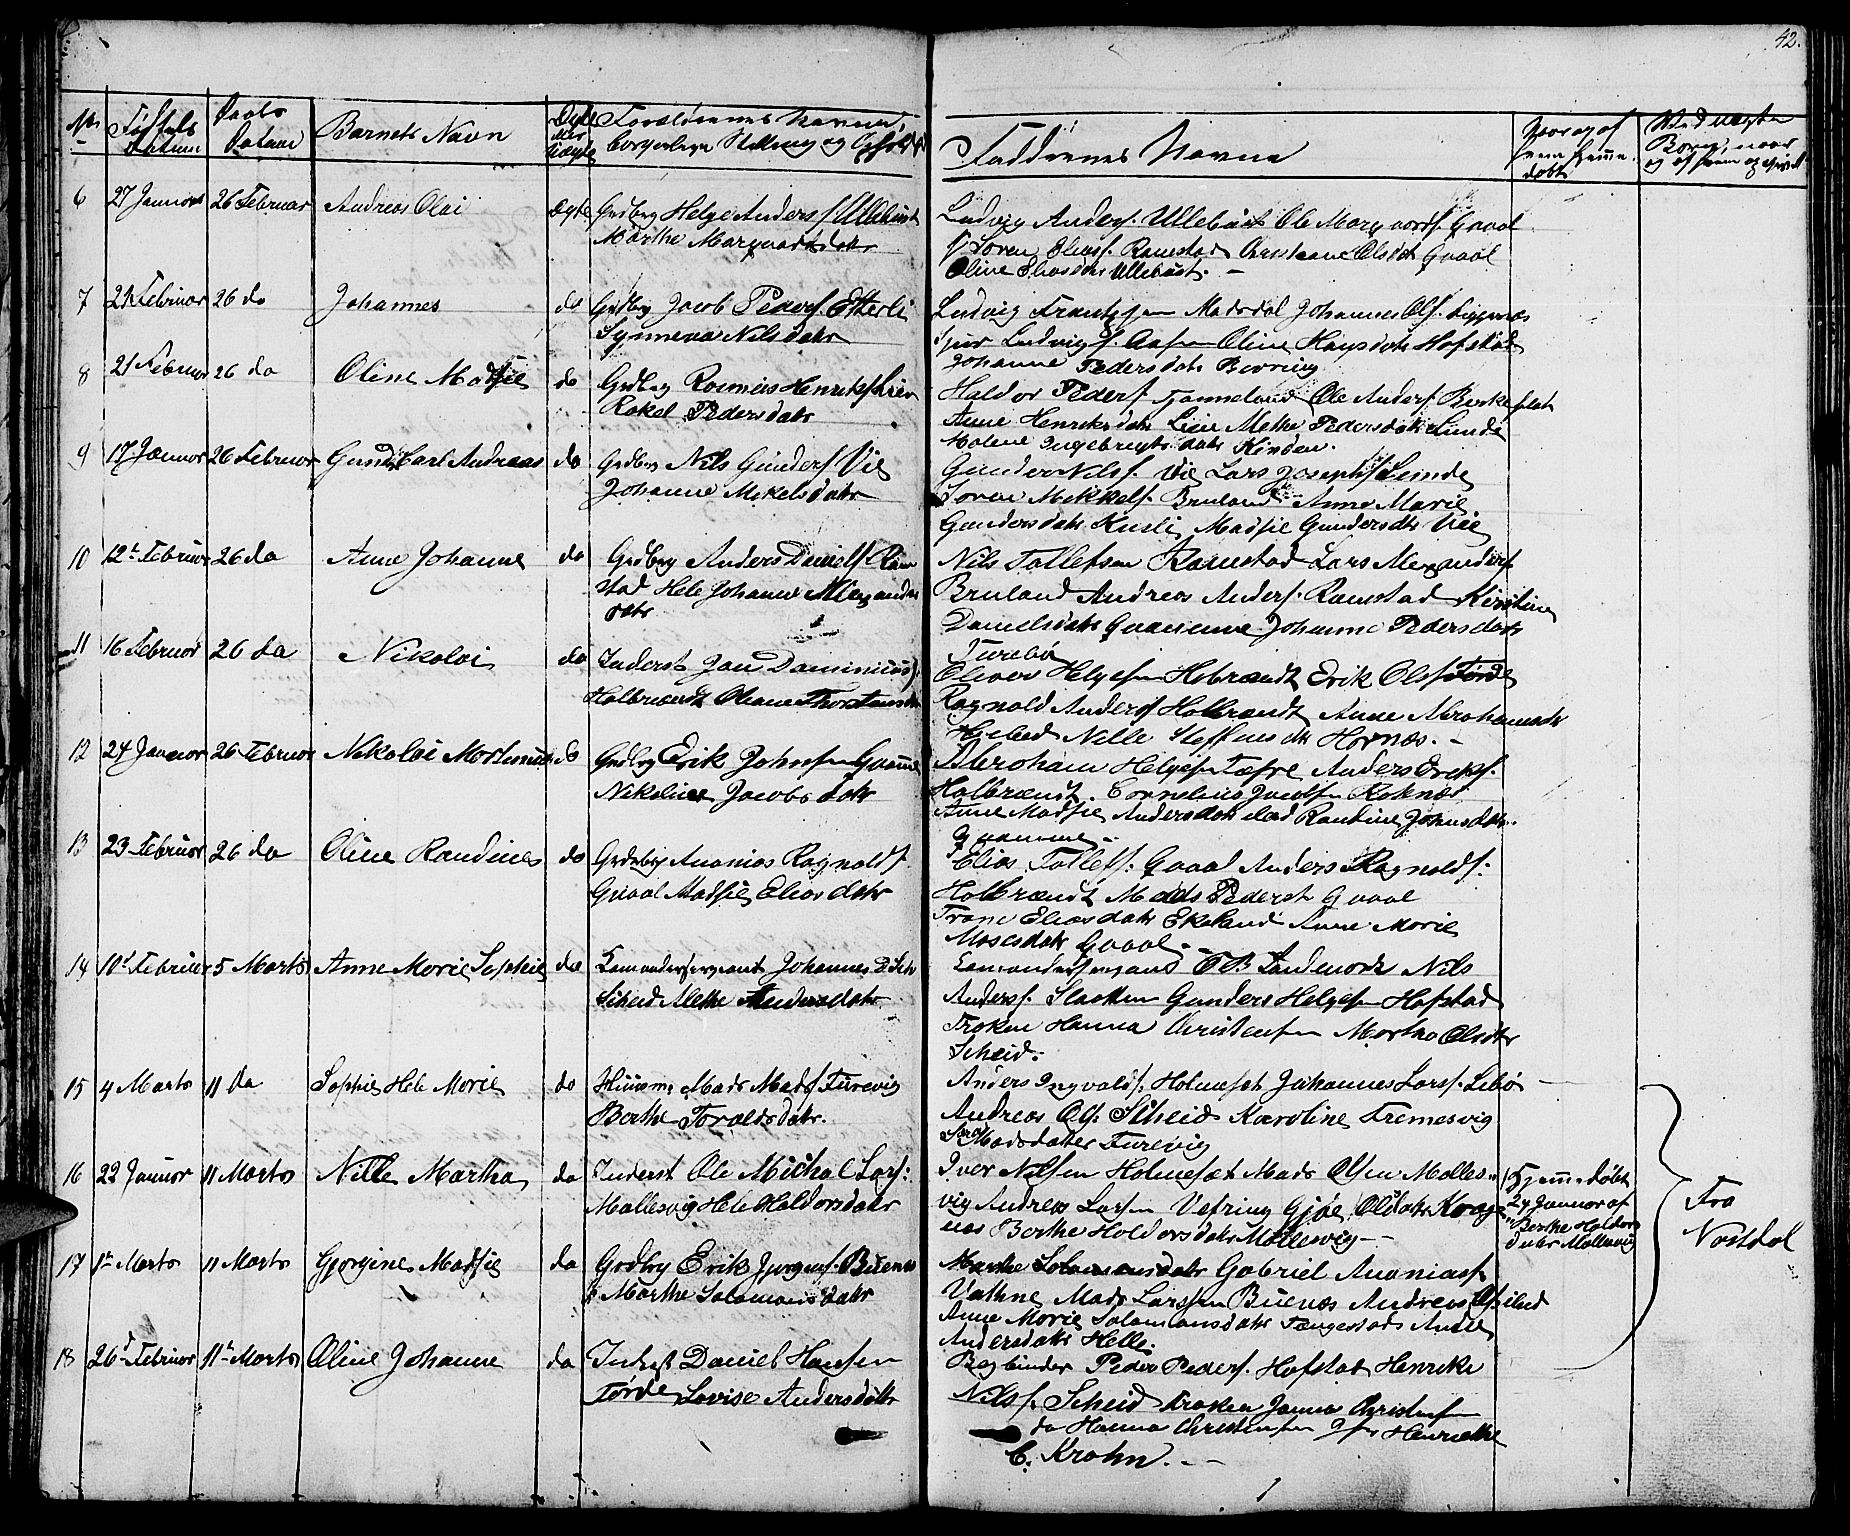 42.
No Fødsels Datum Daabs Datum Barnets Navn Ægte eller Uægte Forældrenes Navne, borgerlige Stilling og
Faddernes Navne
6 27 Januar 26 Februar Andreas Olai Ægte Grdbrg Helge Anders. Ullebust
Marthe Margvardsdatr
Ludvig Anders. Ullebust Ole Margvards. Gaaal
Søren Elias. Ramstad Christiane Olsdtr Gvaal
Oline Eliasdtr Ullebust. -
7 21 Februar 26 do Johannes do Grdbrg Jacob Peders. Efterli
Synneva Nilsdatr
Ludvig Frantzsen Madsdal Johannes Ols.
Ludvigs. Aasen Oline Hansdatr Hofstad
Johanne Pedersdatr Bivring
8 21 Februar 26 do Oline Madsie do Grdbrg Rasmus Henriks. Lien
Rakel Pedersdatr
Haldor Peders. Ole Anders. Birkeflat
Anne Henriksdatr Lien Methe Pedersdatr Lunde
Malene Ingebrigtsdatr Kinden.
9 17 Januar 26 Februar Gunder Carl Andreas do Grdbrg Nils Gunders. Vie
Johanne Mikelsdatr
Gunder Nils. Vie Lars Josephs. Lunde
Søren Mikkels. Bruland Anne Marie
Gundersdatr Kusli Madsie Gundersdtr Vie
10 12t Februar 26 do Anne Johanne do Grdbrg Anders Daniels. Ram
stad Hele Johanne Alexanders
datr
Nils Tollefsen Ramstad Lars Alexanders.
Bruland Andreas Anders. Ramstad Kirstine
Danielsdatr Gvamme Johanne Pedersdatr
Furebø
11 16 Februar 26 do Nikolai do Inderst Jan Daminicus.
Halbrændt Oliane Thorstensdtr
Oliver Helgesen Halbrændt Erik Ols. Førde
Ragnald Anders. Halbrændt Anne Abrahamsdtr
Nille Steffensdtr Hornæs. -
12 24 Januar 26 Februar Nikolai Mortinus do Grdbrg Erik Johnsen Gvamme
Nikoline Jacobsdatr
Abraham Helgesen Tefre Anders Eriks.
Halbrændt. Cornelius Jacobsen Roknæs
Anne Madsie Andersdatr Randine Johnsdatr.
Gvamme -
13 23 Februar 26 do Oline Randines do Grdbrg Ananias Ragnalds.
Gvaal Madsie Eliasdatr
Elias Tollefs. Gvaal Anders Ragnalds.
Halbrændt Mads Peders. Gvaal
Eliasdatr Ekeland Anne Marie
Mosesdatr Gvaal -
14 10d Februar 5 Marts Anne Marie Sophie do Comandersergeant Johannes
Scheid Alethe Andersdatr
Comandersergeant
Anders. Slaatten Gunders Helgesen Hofstad
Frøken Hanna Christensen Martha Olsdtr
Scheid.
15 4 Marts 11 do Sophie Hele Marie do Huusm. Mads Mads. Furevig
Berthe Toraldsdatr.
Anders Ingvalds. Holmeset Johannes Lars. Lebø -
Andreas Ols. Scheid Karoline Fremesvig
Madsdatter Furevig
16 22 Januar 11 Marts Nille Martha do Inderst Ole Michal Lars.
Mallesvig Hele Haldorsdatr
Iver Nilsen Holmeset Mads Olsen Malles-
vig Andreas Larsen Vefring Gjøe Olsdatr Krage
næs Berthe Holdorsdatr Mallesvig -
Hjemmedøbt
24 Januar af
Berthe Haldors
datr Mallesvig
17 1t Marts 11 Marts Gjorgine Madsie do Grdbrg Erik Jørgens. Buenes
Marthe Salamonsdatr
Marthe Salamonsdatr Gabriel Ananias.
Vathne Mads Larssen Buenæs Andreas
Anne Marie Salamonsdatr Tangestad
Andersdatr Helle.
Fra
Nastdal
18 26d Februar 11t Marts Oline Johanne do Inderst Daniel Hansen
Førde Lovise Andersdatr
Bogbinder Peder Peders. Hofstad Henrike
Nils. Scheid Frøken Janna Christensen
do Hanna Christensen Henriethe
C. Krohn. -